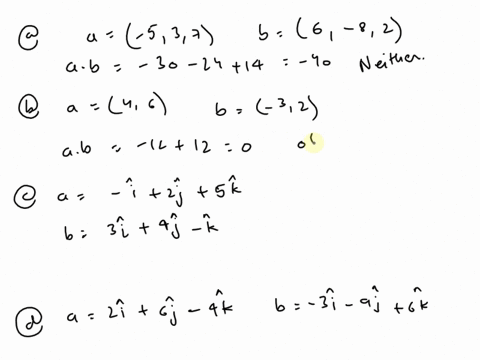 (a) a = (-5, 3, 7) b = (6, -8, 2)
a.b = -30 -24 +14 = -40 Neither.
(b) a = (4, 6) b = (-3, 2)
a.b = -12 + 12 = 0
(c) a = -î + 2ĵ + 5k̂
b = 3î + 4ĵ - k̂
(d) a = 2î + 6ĵ - 4k̂ b = -3î - 9ĵ + 6k̂